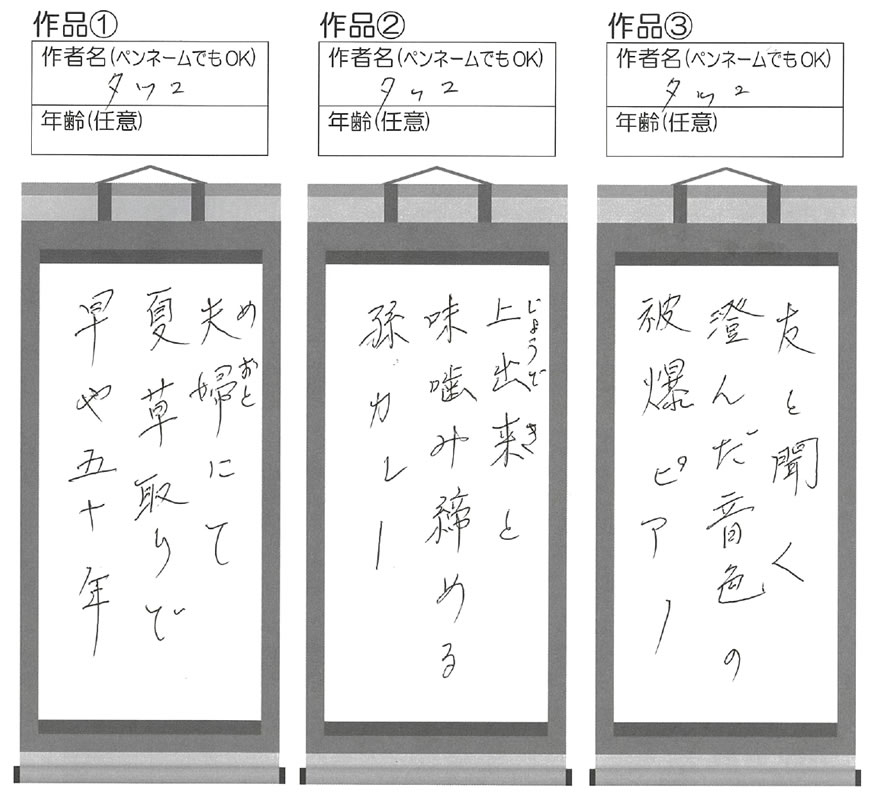 作品①
作者名(ペンネームでもOK)
タツコ
年齢(任意)
夫婦にて
めおと
夏草取りで
早や五十年
作品②
作者名(ペンネームでもOK)
タツコ
年齢(任意)
上出来と
じょうでき
味噛み締める
孫カレー
作品③
作者名(ペンネームでもOK)
タツコ
年齢(任意)
友と聞く
澄んだ音色の
被爆ピアノ